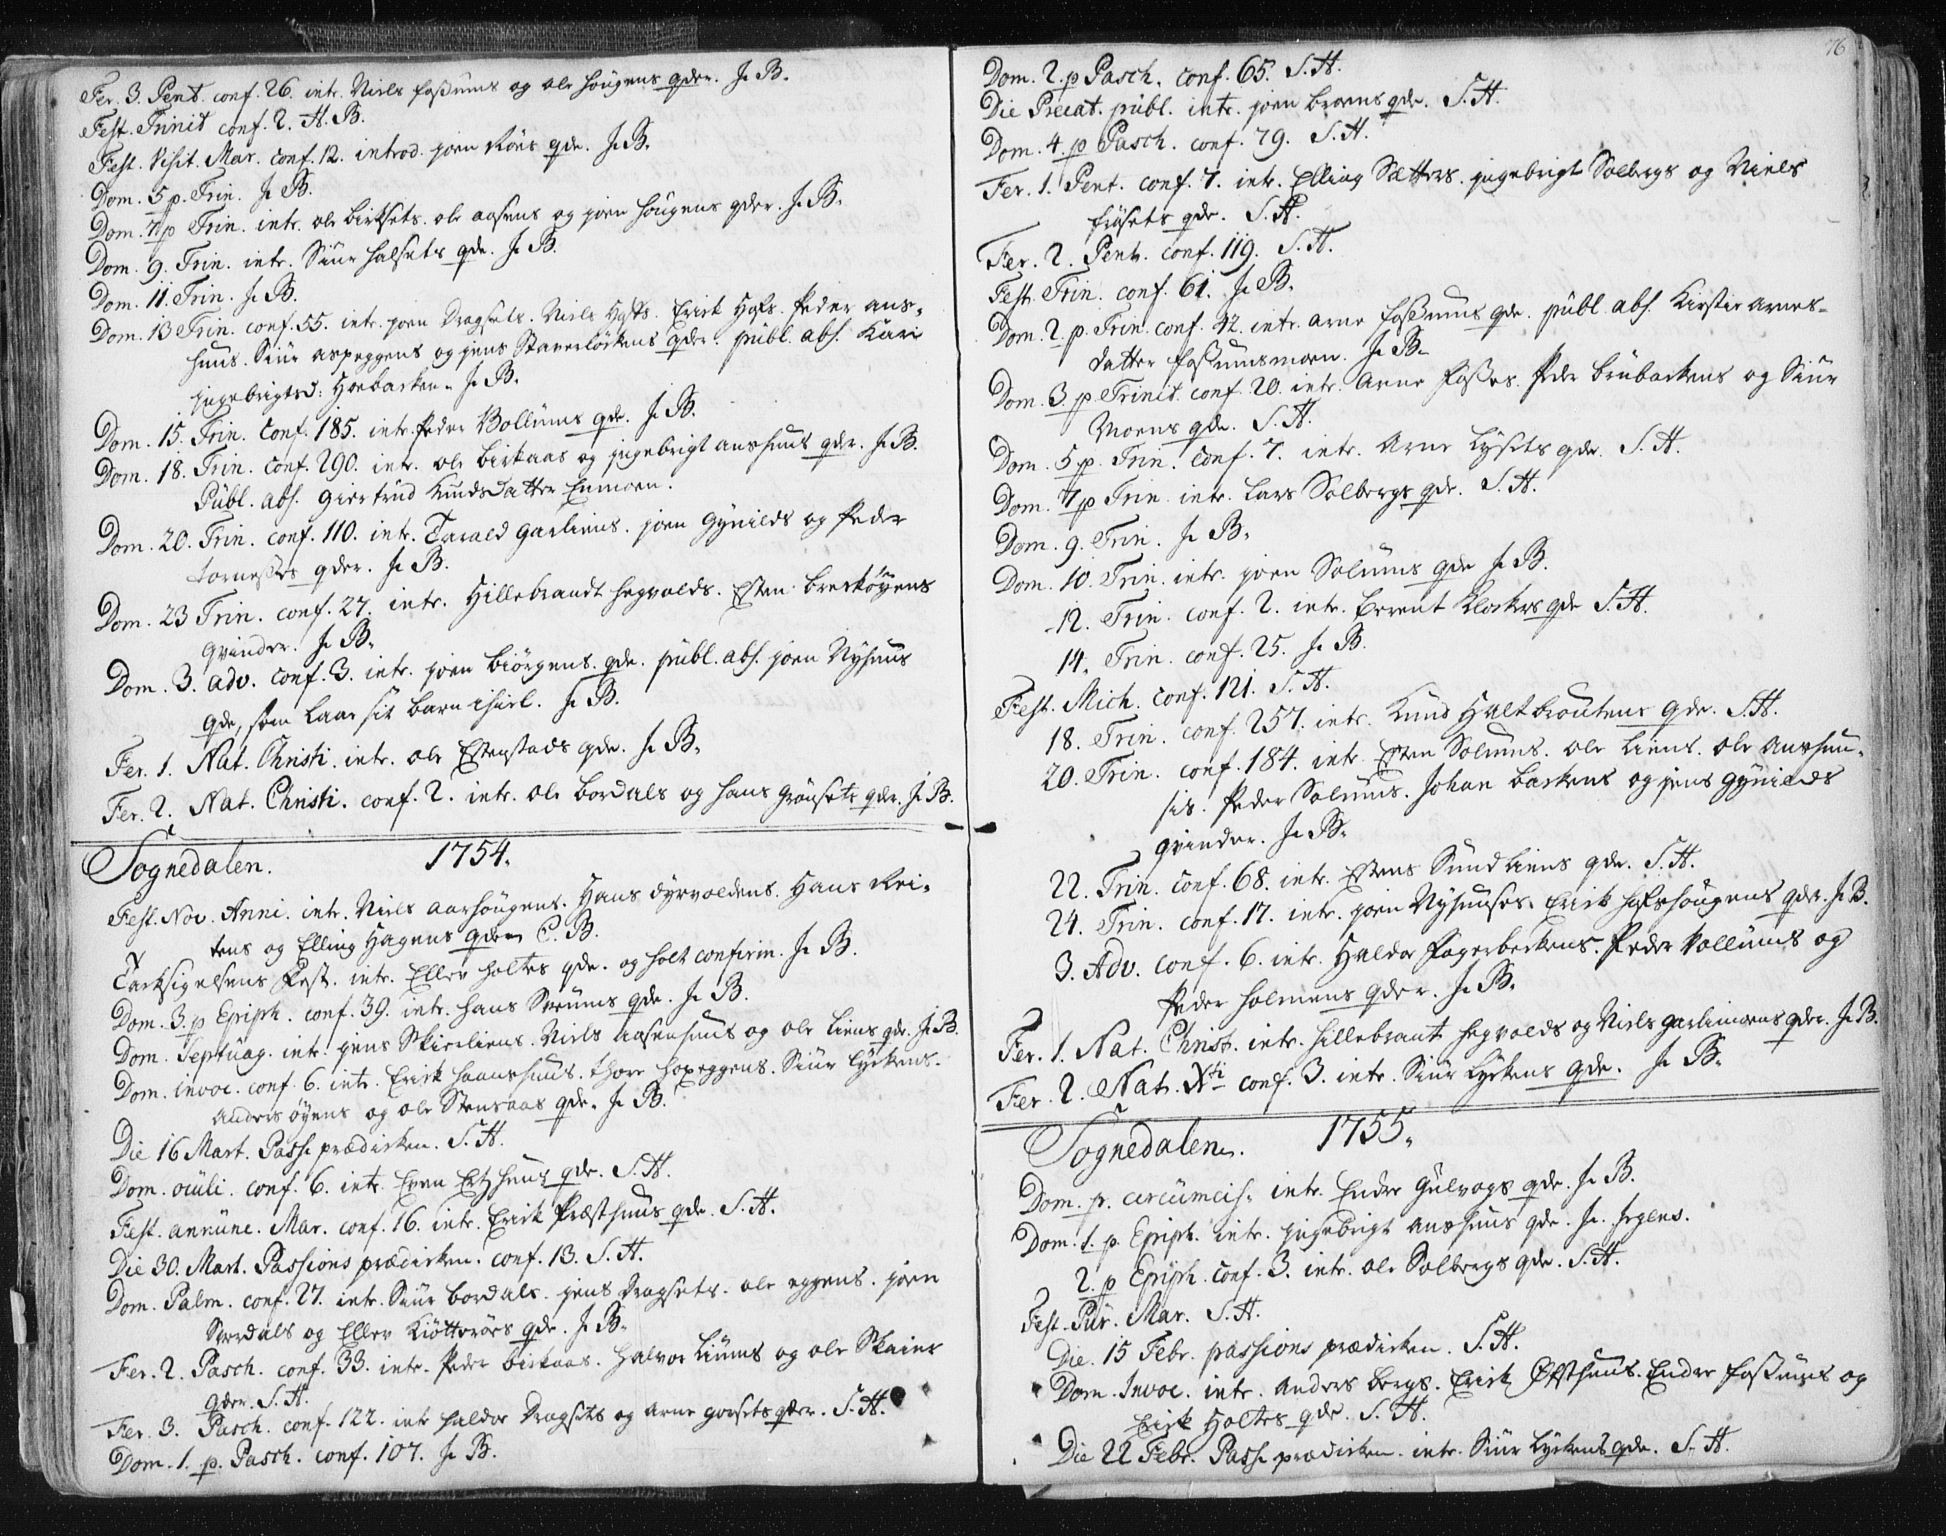 Fer. 3. Pent. conf. 26. intr. Niels foßums og ole hougens qder. J. B.
Fest. Trinit conf. 2. H. B.
Fest. Visit. Mar. conf. 12. introd. joen Röes qde. J. B.
Dom. 5 p. Trin. J. B.
Dom. 7 p Trin. intr. ole birksets. ole aasens og joen hougens qder. J. B.
Dom. 9. Trin. intr. Siur halsets qde. J. B.
Dom. 11. Trin. J. B.
Dom. 13 Trin. conf. 55. intr. joen Dragsets. Niels Hofs. Erick Hofs. Peder aus-
huus. Siur aspeggens og jens Staverløckens qder. publ. abs. Kari
jngebrigtsd: Hoebacken. J. B.
Dom. 15. Trin. conf. 185. intr. Peder Vollums qde. J. B.
Dom. 18. Trin. conf. 290. intr. ole birkaas og jngebrigt aushuus qder. J. B.
Publ. abs. giertrud Knudsdatter Enmoen.
Dom. 20. Trin. conf. 110. intr. Tarald garliens. joen gynilds og Peder
torneßes qder. J. B.
Dom. 23 Trin. conf. 27. intr. Hillebrandt hegvolds. Esten brecköyens
qvinder. J. B.
Dom. 3. adv. conf. 3. intr. joen biörgens qde. publ. abs. joen Nyhuus
qde, som laae sit barn ihiel. J. B.
Fer. 1. Nat. Christi. intr. ole Estenstads qde. J. B.
Fer. 2. Nat. Christi. conf. 2. intr. ole bordals og hans grönsets qder. J. B.
Sognedalen. 1754.
Fest. Nov. Anni. intr. Niels aarhougens. Hans dyrvoldens. Hans Rei-
tens og Elling Hagens qder C. B.
Tacksigelsens Fest. intr. Ellev holtes qde. og holt confirm. J. B.
Dom. 3. p Epiph. conf. 39. intr. hans Soeums qde. J. B.
Dom. Septuag. intr. jens Skierliens. Niels aasenhuus og ole liens qde. J. B.
Dom. invoc. conf. 6. intr. Erick haanshuus. thore hoxeggens. Siur lyckens.
anders öyens og ole Stensaas qde. J. B.
Die 16 Mart. Pass. prædicken. S. H.
Dom. oculi. conf. 6. intr. Even Etzhuus qde. S. H.
Fest. annunc. Mar. conf. 16. intr. Erick Præsthuus qde. S. H.
Die 30. Mart. Passions prædicken. conf. 13. S. H.
Dom. Palm. conf. 27. intr. Siur bordals. jens dragsets. ole eggens. joen
Soerdals og Ellev Kiötteröes qde. J. B.
Fer. 2. Pasch. conf. 33. intr. Peder birkaas. halvor Liums og ole Skaier
qder. S. H.
Fer. 3. Pasch. conf. 122. intr haldor Dragsets og arne goesets qder. S. H.
Dom. 1. p. Pasch. conf. 107. J. B.
76
Dom. 2. p Pasch. conf. 65. S. H.
Die Precat. publ. intr. joen broens qde. S. H.
Dom. 4. p Pasch. conf. 79. S. H.
Fer. 1. Pent. conf. 7. intr. Elling Sætters. jngebrigt Solbergs og Niels
fröesets qde. S. H.
Fer. 2. Pent. conf. 119. S. H.
Fest. Trin. conf. 61. J. B.
Dom. 2. p. Trin. conf. 42. intr. arne foßums qde. publ abs. Kirstie Arnes-
datter foßumsmoen. J. B.
Dom. 3 p Trinit. conf. 20. intr. Arne foßes. Peder brubackens og Siur
Moens qde. S. H.
Dom. 5 p. Trin. conf. 7. intr. Arne lysets qde. S. H.
Dom. 7 p Trin. intr. Lars Solbergs qde. S. H.
Dom. 9. Trin. J. B.
Dom. 10. Trin. intr. joen Solums qde J. B.
12. Trin. conf. 2. intr. berent Klockers qde S. H.
14. Trin. conf. 25. J. B.
Fest. Mich. conf. 121. S. H.
18. Trin. conf. 257. intr. Knud Haltbroutens qde. S. H.
20. Trin. conf. 184. intr Esten Solums. ole Liens. ole aushuu-
sis. Peder Solums. Johan backens og jens gynilds
qvinder. J. B.
22. Trin. conf. 68. intr. Estens Sundliens qde. S. H.
24. Trin. conf. 17. intr. joen Nyhuuses. Erick hofshougens qder. J. B.
3. Adv. conf. 6. intr. Haldor fagerbeckens. Peder Vollums og
Peder holmens qder. J. B.
Fer. 1. Nat. Christ. intr. hillebrant hegvolds og Niels garlimoens qder. J. B.
Fer. 2. Nat. Xti conf. 3. intr. Siur lyckens qde. J. B.
Sognedalen. 1755.
Dom. p. circumcis. intr. Endre Gulvogs qde. J. B.
Dom. 1. p. Epiph. intr. jngebrigt aushuus qde. J. Irgens.
2. p Epiph. conf. 3. intr. ole Solbergs qde. S. H.
Fest. Pur. Mar. S. H.
Die. 15 Febr. passions prædicken. S. H.
Dom. Invoc. intr. anders bergs. Erick Ofsthuus. Endre foßums og
Erick Holtes qde. S. H.
Die 22 Febr. Pass. prædicken. intr. Siur lyckens qde. S. H.